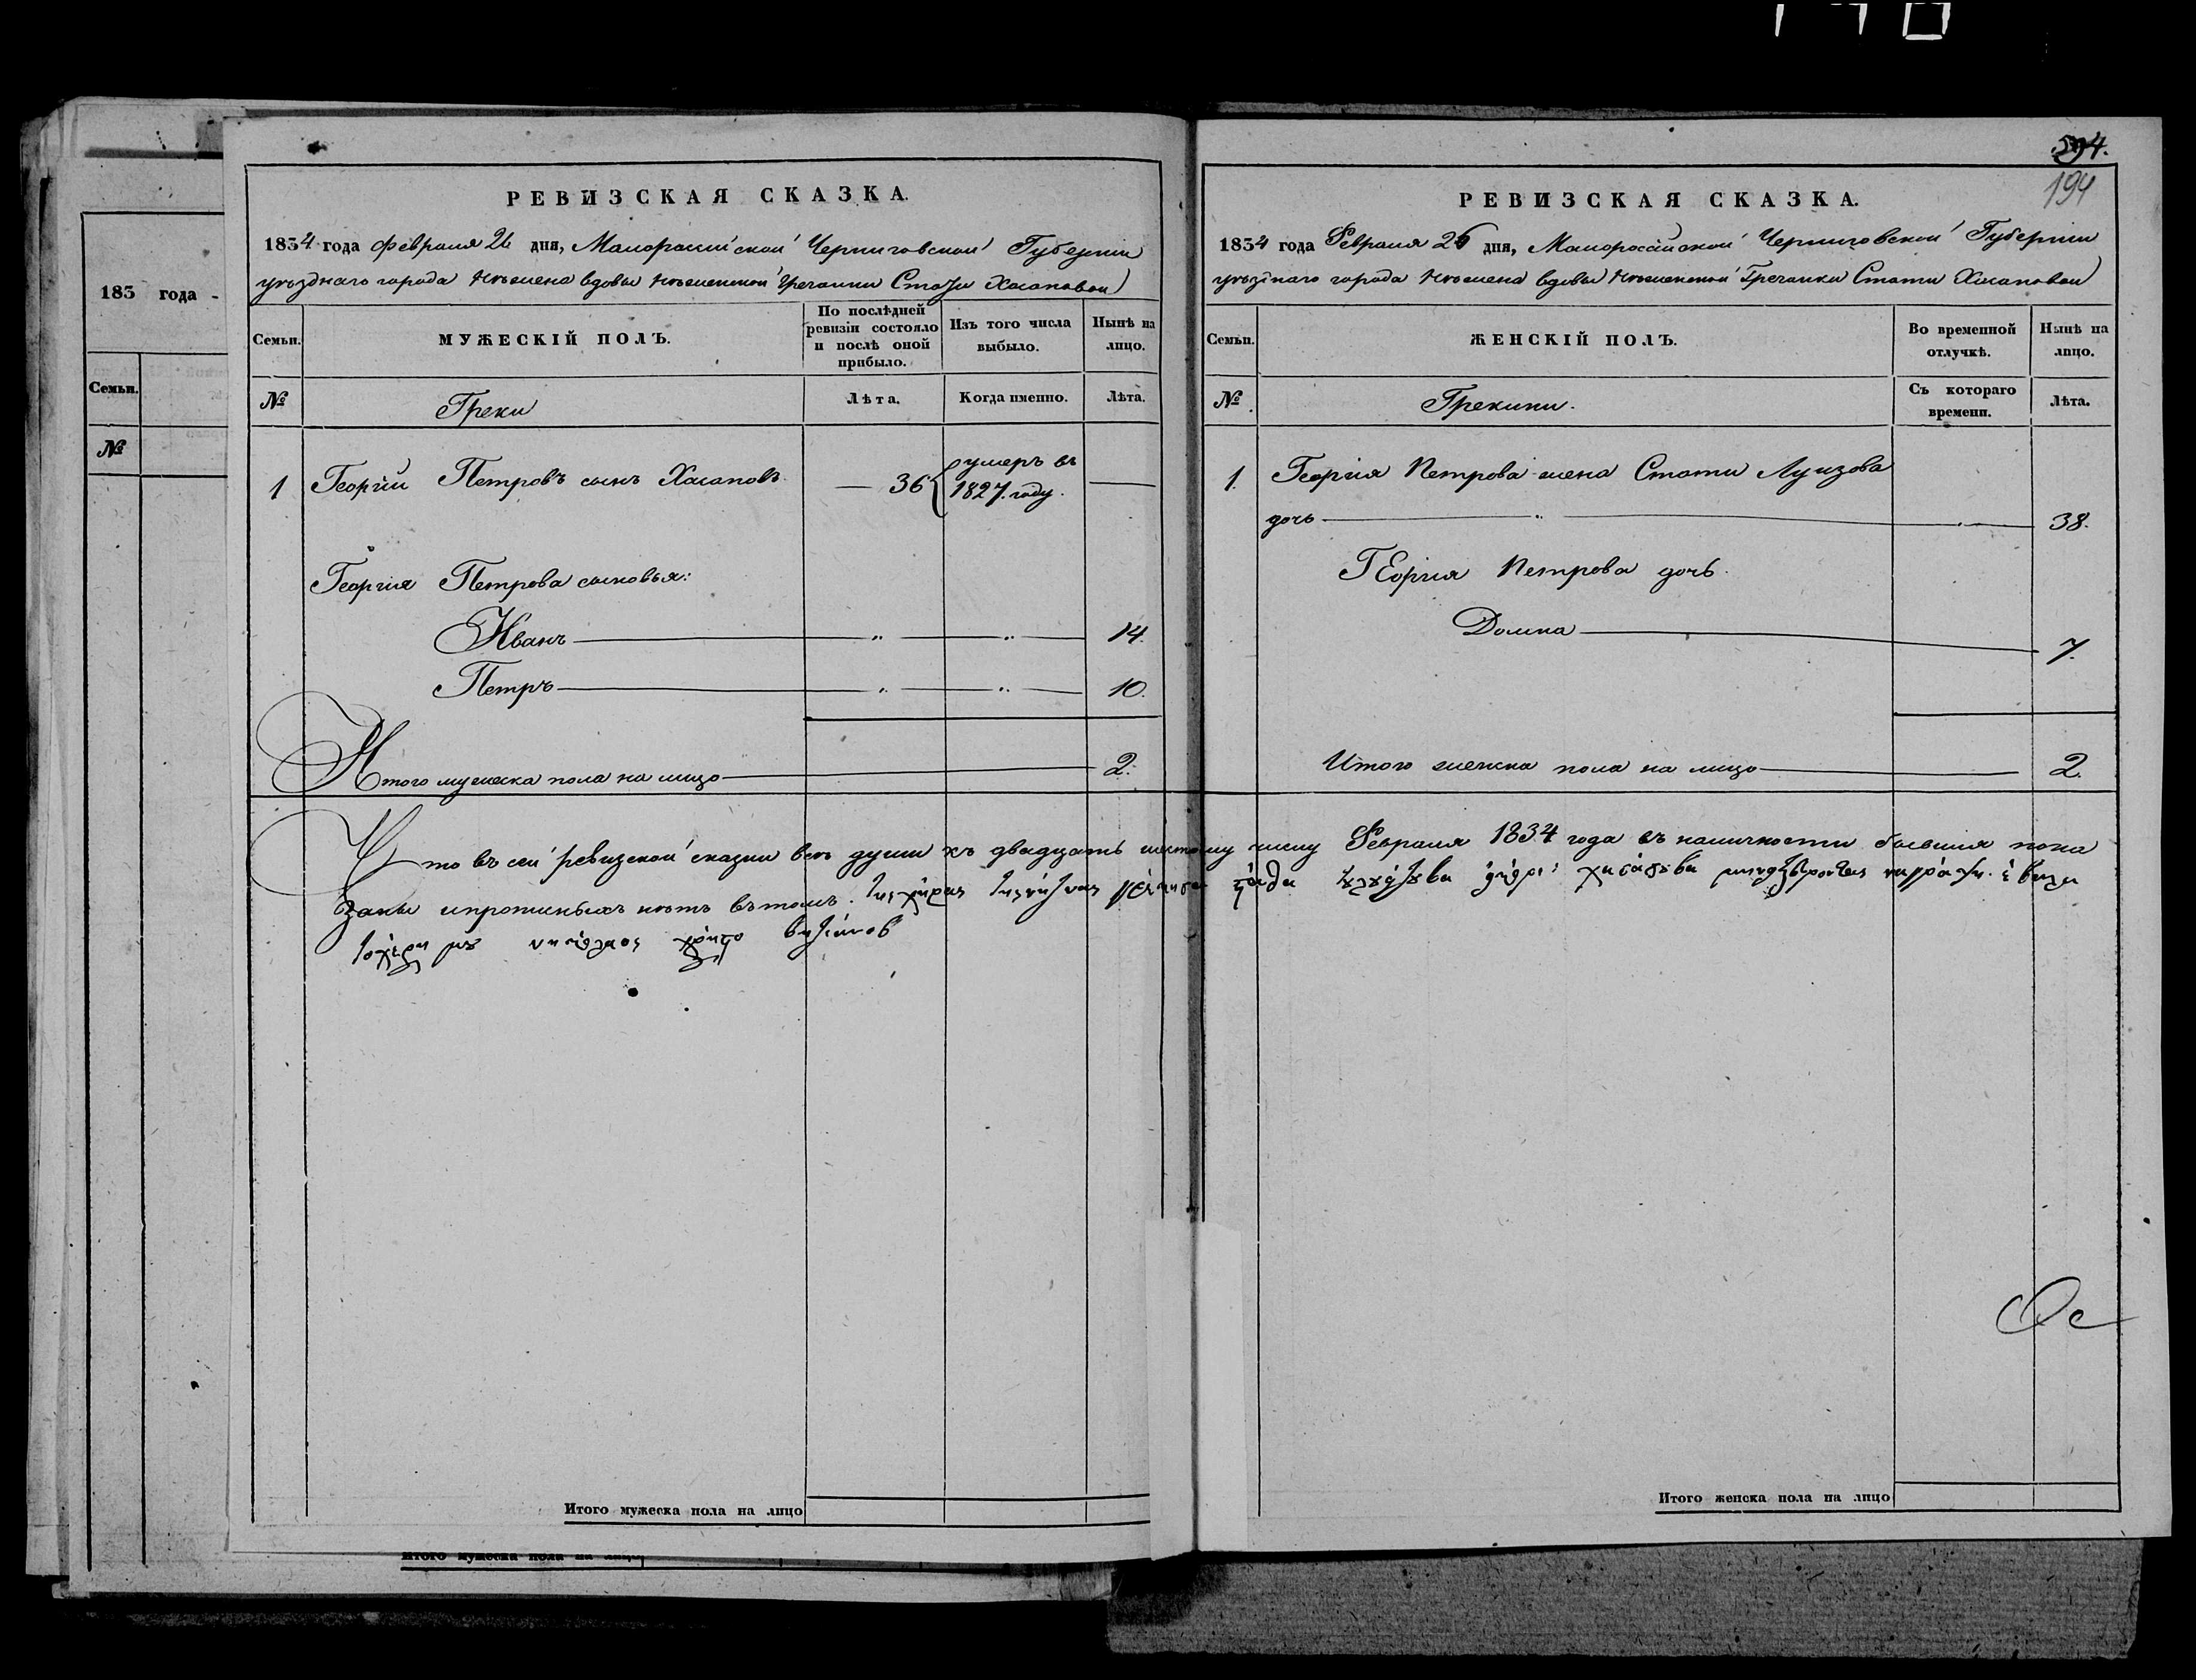 594.
194
183 года -
Семьи.
№
РЕВИЗСКАЯ СКАЗКА.
1834 года февраля 26 дня, Малоросссійской Черниговской Губерніи
уѣзднаго города Нѣжина вдовы Нѣжинской Гречанки Стати Хасаповой
Семьи.
МУЖЕСКІЙ ПОЛЪ.
По послѣдней ревизіи состояло и послѣ оной прибыло.
Изъ того числа выбыло.
Нынѣ на лицо.
№
Греки
Лѣта.
Когда именно.
Лѣта.
1 Георгій Петровъ сынъ Хасаповъ — 36 умеръ въ 1827. году. —
Георгія Петрова сыновья:
Иванъ — " — " — 14.
Петръ — " — " — 10.
Итого мужеска пола на лицо — 2.
Итого мужеска пола на лицо
РЕВИЗСКАЯ СКАЗКА.
1834 года Февраля 26 дня, Малоросійской Черниговской Губерніи
уѣзднаго города Нѣжина вдовы Нѣжинской Гречанки Стати Хасаповой
Семьи.
ЖЕНСКІЙ ПОЛЪ.
Во временной отлучкѣ.
Нынѣ на лицо.
№
Грекини.
Съ котораго времени.
Лѣта.
1. Георгія Петрова жена Стати Луизова
дочь — " — 38.
Георгія Петрова дочь.
Домна — 7.
Итого женска пола на лицо — 2.
Что въ сей ревизской сказки всѣ души къ двадцать шестому числу Февраля 1834 года въ наличности бывшия пока
заны ипрописныхъ нѣтъ въ томъ.
Ос
Итого женска пола на лицо
Итого мужеска пола на лицо